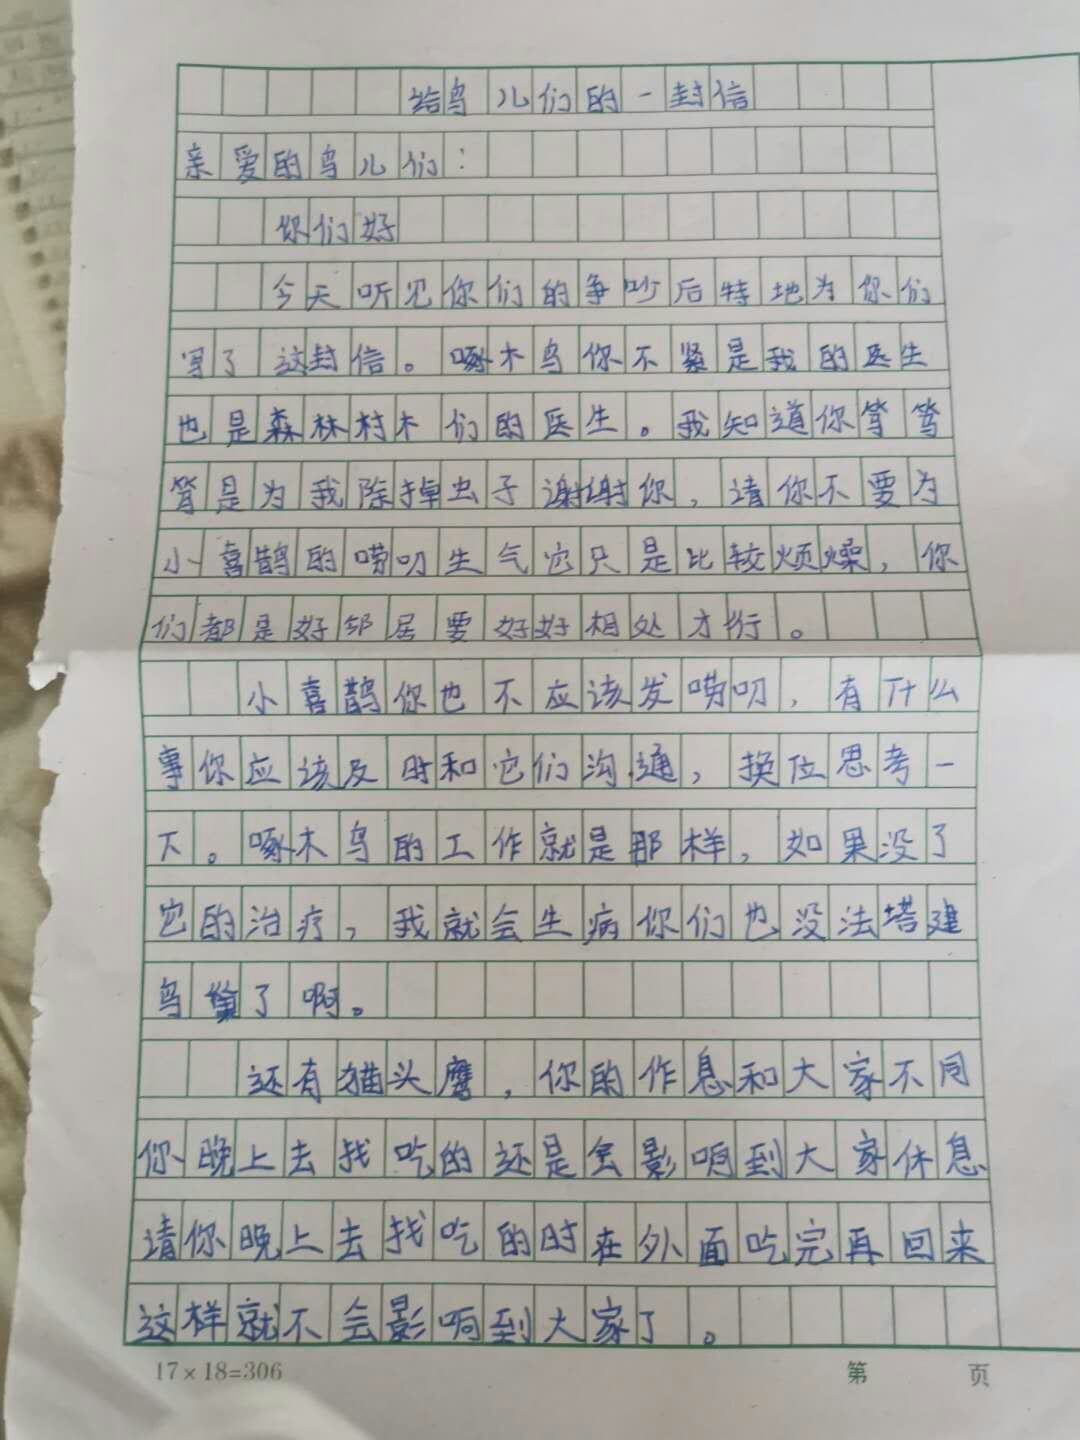 给鸟儿们的一封信
亲爱的鸟儿们：
你们好
今天听见你们的争吵后特地为你们
写了这封信。啄木鸟你不紧是我的医生
也是森林村木们的医生。我知道你笃笃
笃是为我除掉虫子谢谢你，请你不要为
小喜鹊的唠叨生气它只是比较烦燥，你
们都是好邻居要好好相处才行。
小喜鹊你也不应该发唠叨，有什么
事你应该及时和它们沟通，换位思考一
下。啄木鸟的工作就是那样，如果没了
它的治疗，我就会生病你们也没法塔建
鸟巢了啊。
还有猫头鹰，你的作息和大家不同
你晚上去找吃的还是会影响到大家休息
请你晚上去找吃的时在外面吃完再回来
这样就不会影响到大家了。
17×18=306
第 页